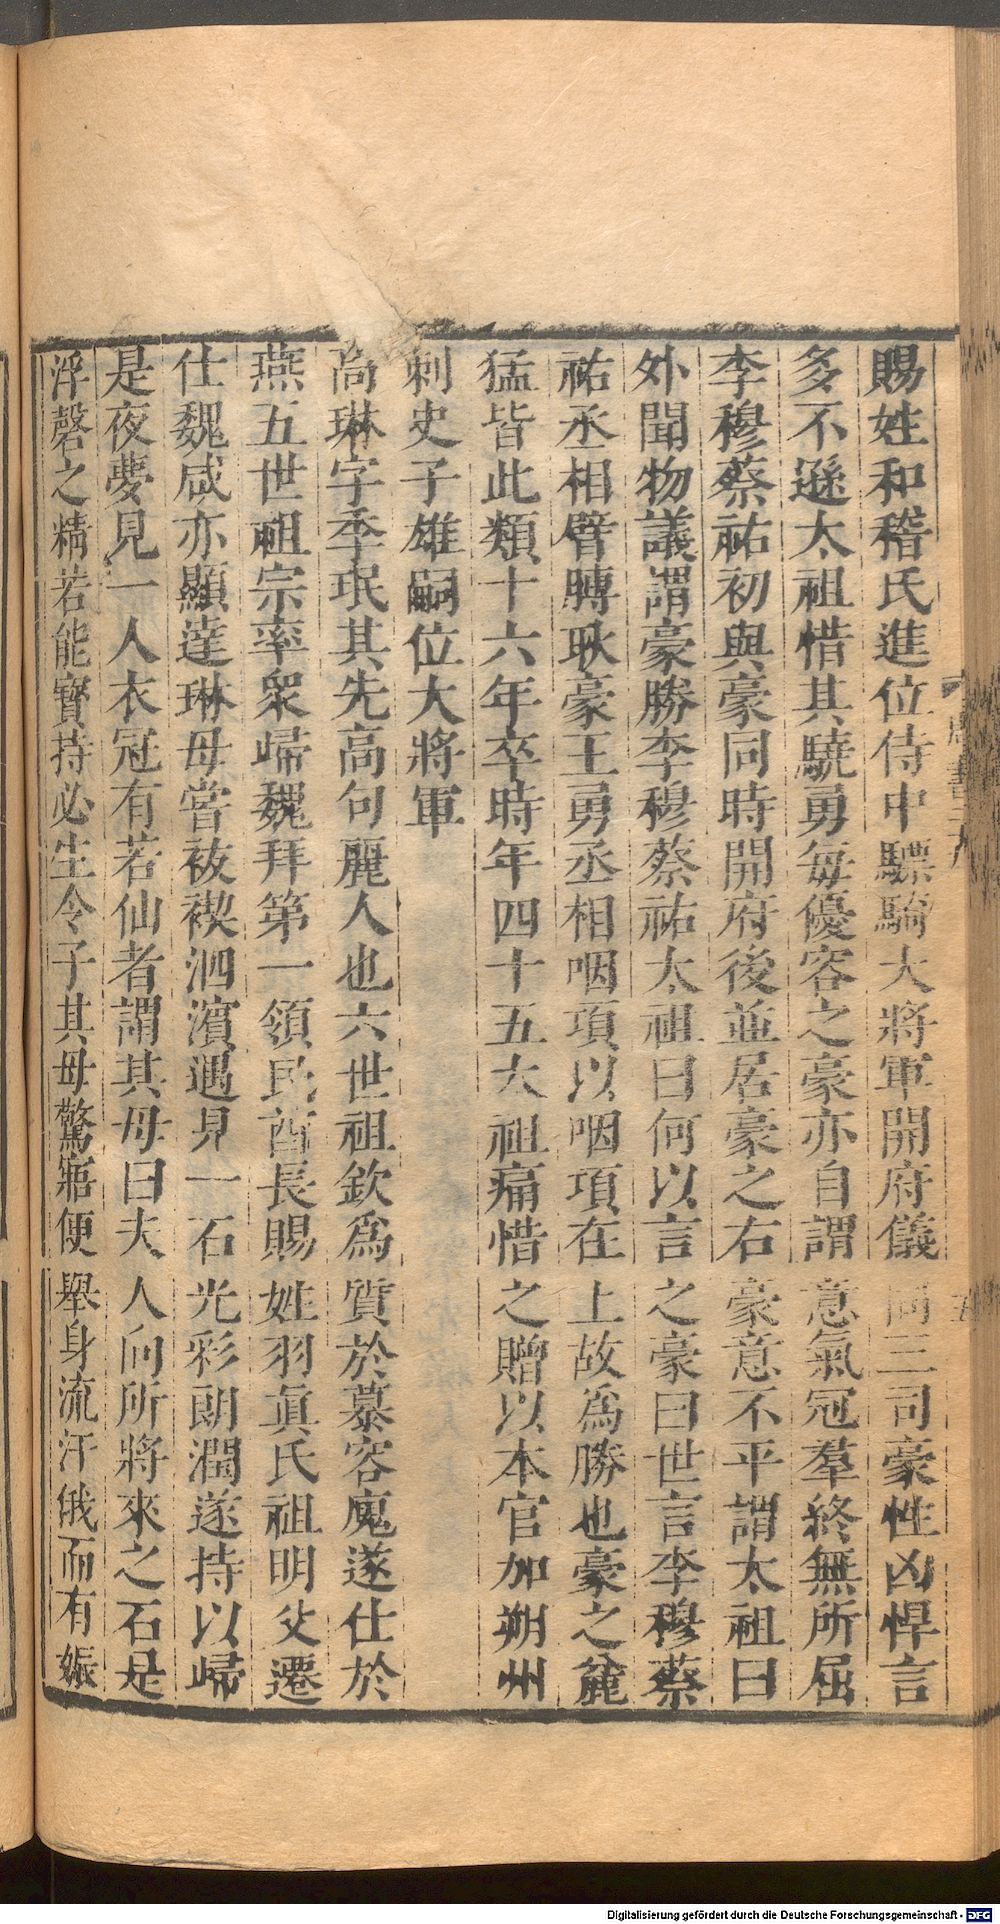 賜姓和稽氏進位侍中驃騎大將軍開府儀同三司豪性凶悍言
多不遜太祖惜其驍勇每優容之豪亦自謂意氣冠羣終無所屈
李穆蔡祐初與豪同時開府後並居豪之右豪意不平謂太祖曰
外聞物議謂豪勝李穆蔡祐太祖曰何以言之豪曰世言李穆蔡
祐丞相臂膊耿豪王勇丞相咽項以咽項在上故爲勝也豪之麄
猛皆此類十六年卒時年四十五太祖痛惜之贈以本官加朔州
刺史子雄嗣位大將軍
高琳字季珉其先高句麗人也六世祖欽爲質於慕容廆遂仕於
燕五世祖宗率衆歸魏拜第一領民酋長賜姓羽眞氏祖明父遷
仕魏咸亦顯達琳母嘗祓禊泗濱遇見一石光彩朗潤遂持以歸
是夜夢見一人衣冠有若仙者謂其母曰夫人向所將來之石是
浮磬之精若能寳持必生令子其母驚寤便舉身流汗俄而有娠
周書二十九
五
Digitalisierung gefördert durch die Deutsche Forschungsgemeinschaft - DFG